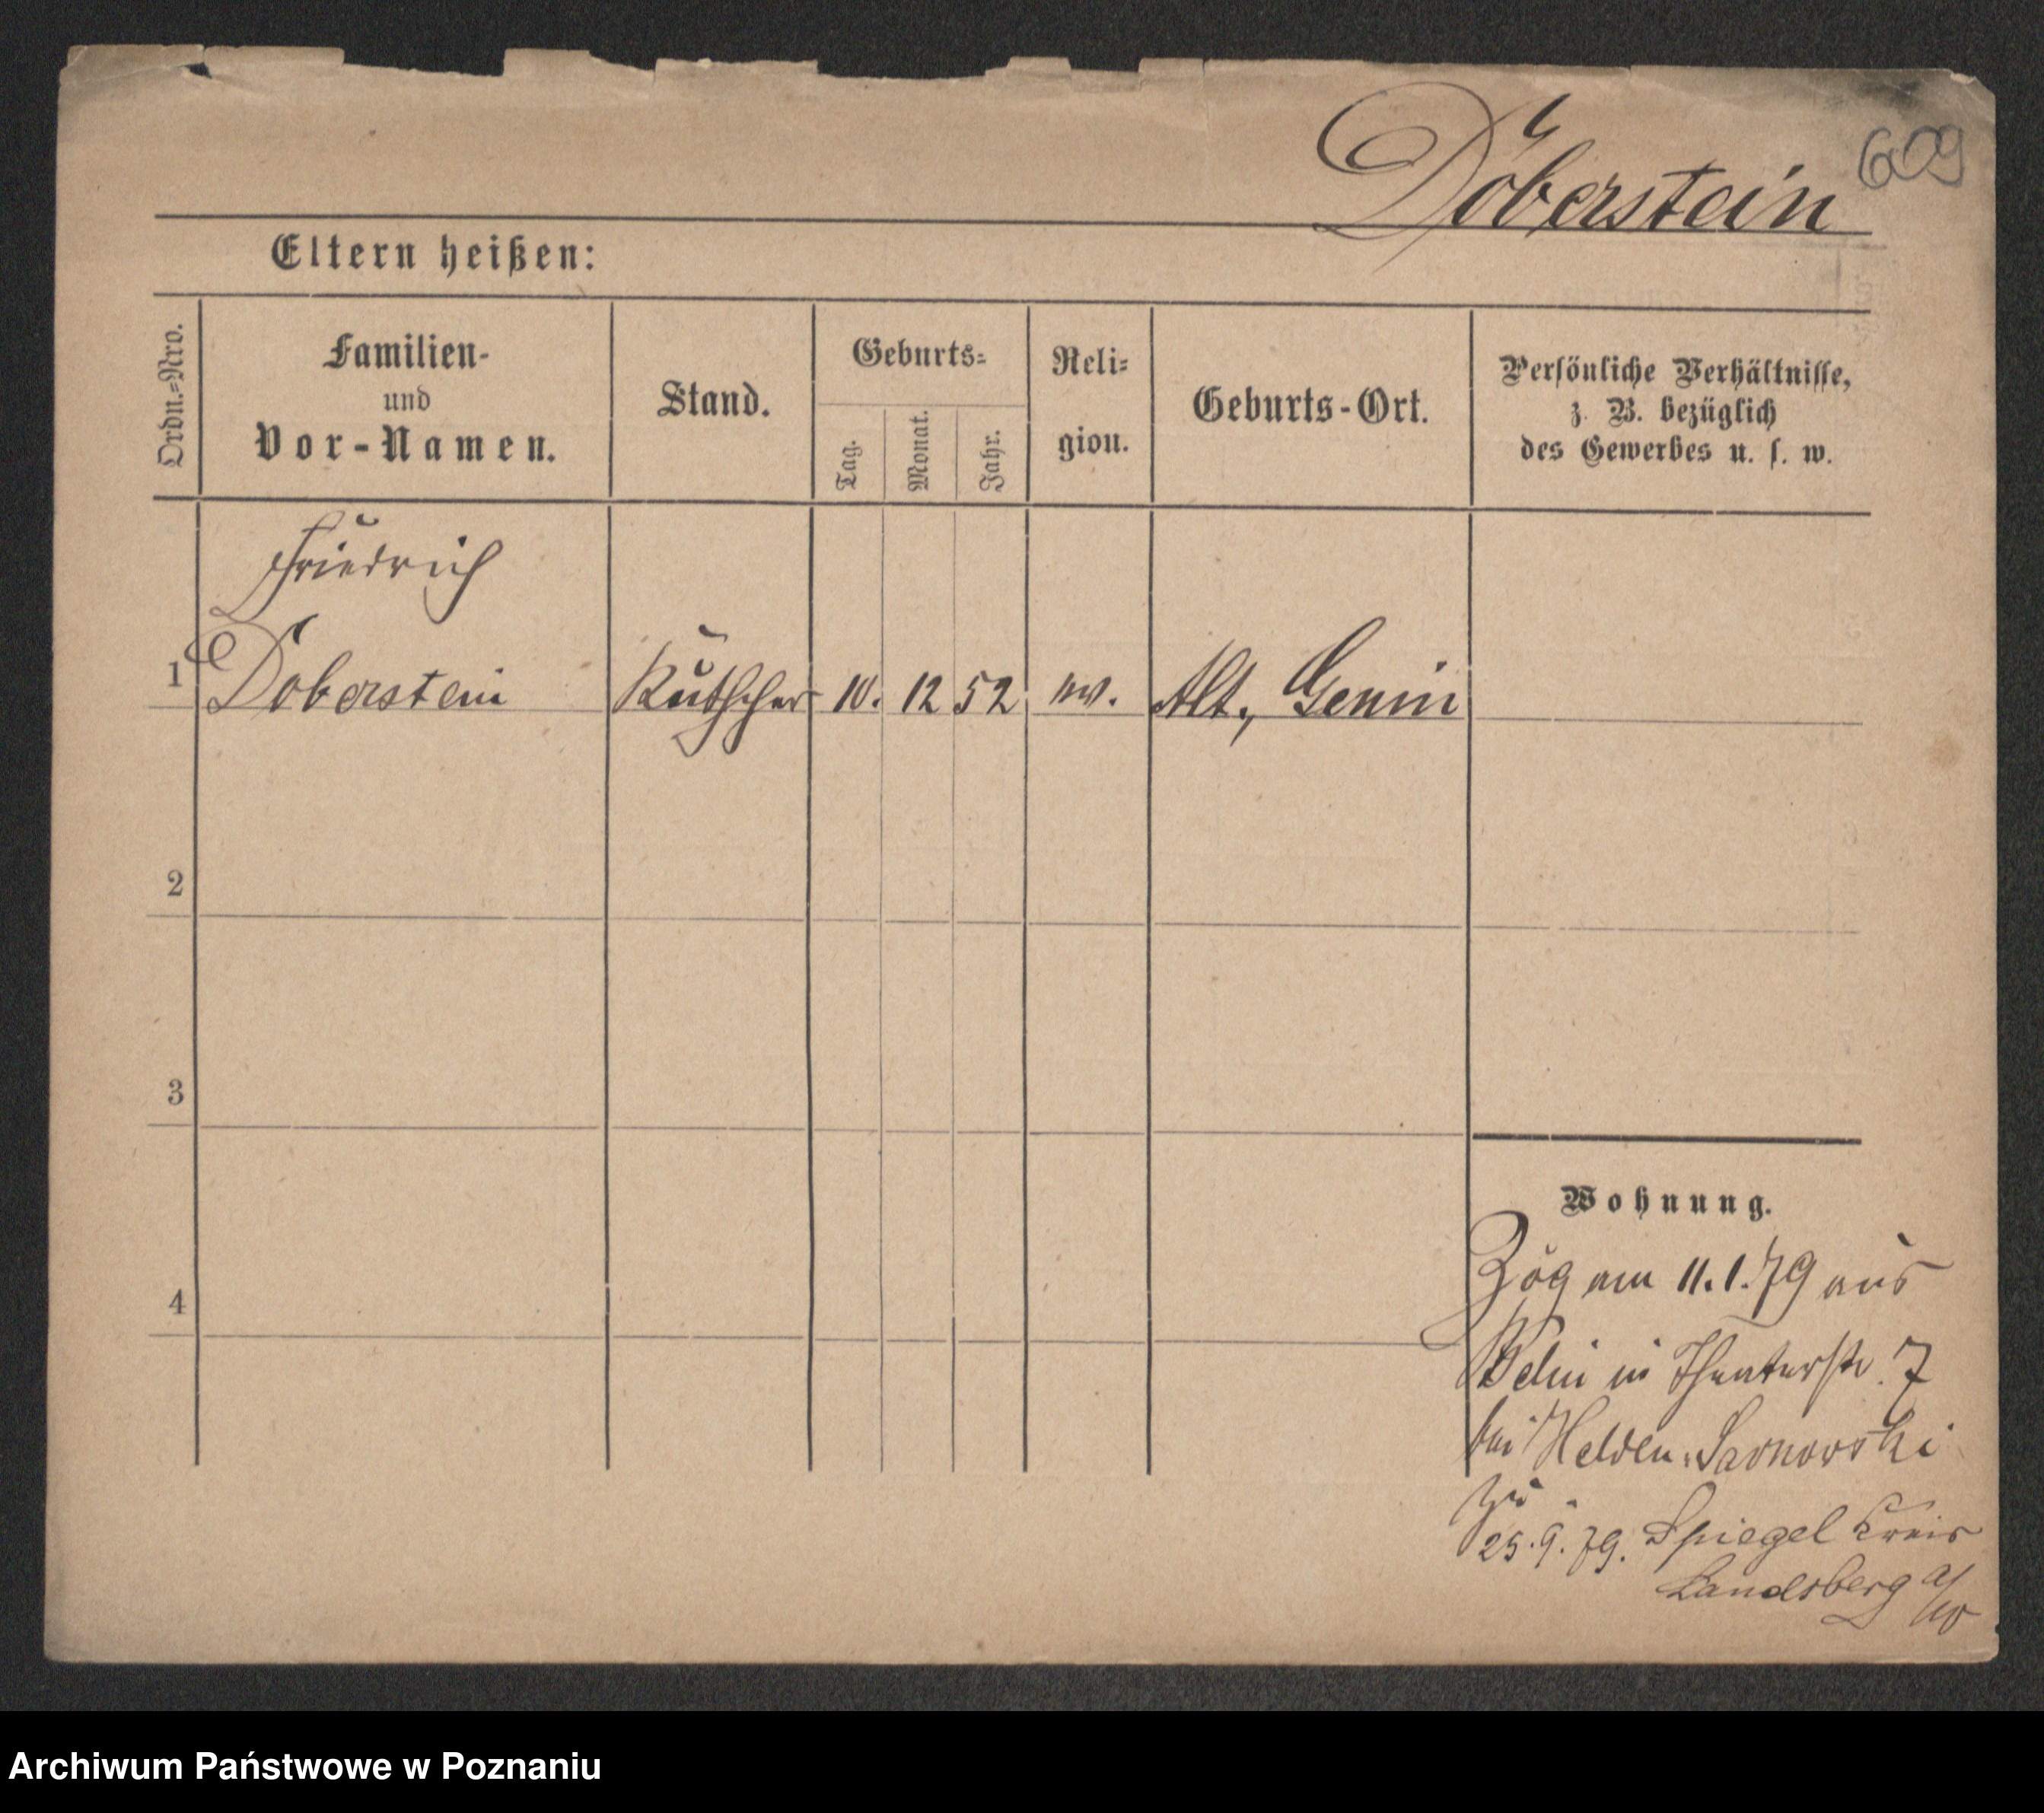 Döberstein
609
Eltern heißen:
Ordn.=Nro.
Familien-
und
Vor-Namen.
Stand.
Geburts=
Tag.
Monat.
Jahr.
Reli=
gion.
Geburts-Ort.
Persönliche Verhältnisse,
z. B. bezüglich
des Gewerbes u. s. w.
Friedrich
1 Döberstein Kutscher 10. 12 52 ev. Alt, Gennin
2
3
4
Wohnung.
Zog am 11.1.79 aus
in Theaterstr. 7
bei Sarnowski
25.9.79. Spiegel Kreis
Landsberg a/W
Archiwum Państwowe w Poznaniu